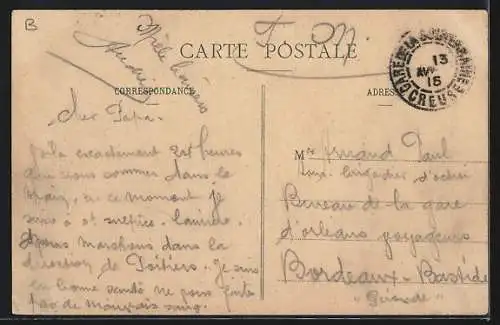 B
F. M.
Mille baisers
CARTE POSTALE
GARE DE LA SOUTERRAINE
13
AVR
15
CREUSE
CORRESPONDANCE
ADRESSE
cher Papa.
Voila exactement 24 heures
que nous sommes dans le
train, a ce moment je
suis à St Sulpice Laurière.
nous marchons dans la
direction de Poitiers. Je suis
en bonne santé ne vous faites
pas de mauvais sang.
Mr Armand Paul
brigadier d'octroi
Bureau de la gare
d'orléans voyageurs
Bordeaux-Bastide
"Gironde"